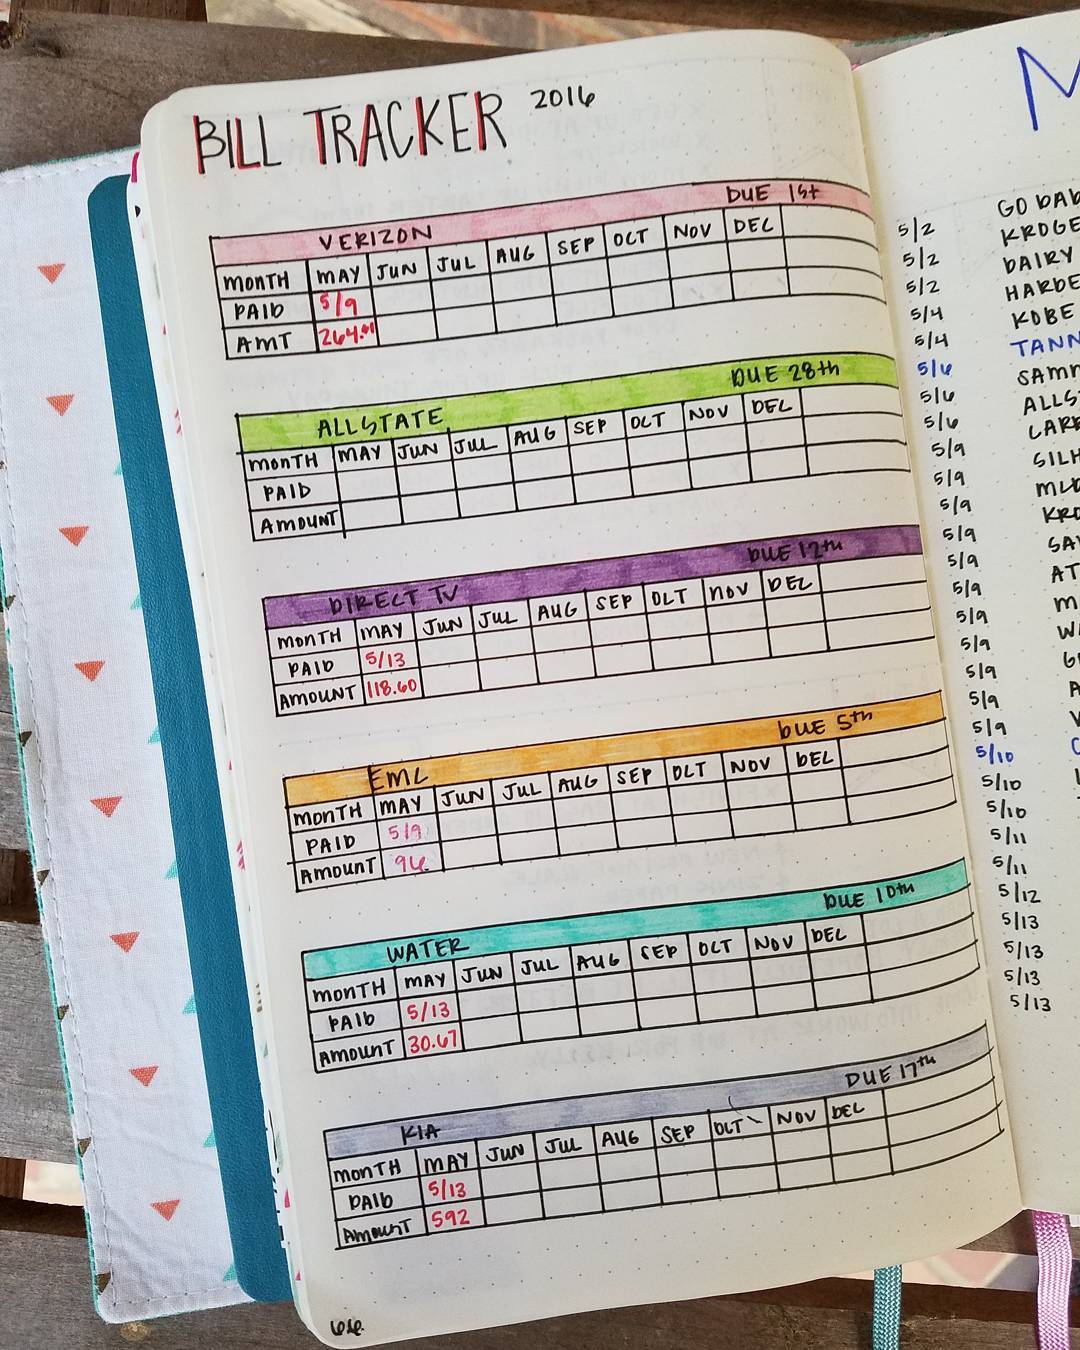 BILL TRACKER 2016
VERIZON DUE 1st
MONTH MAY JUN JUL AUG SEP OCT NOV DEC
PAID 5/9
AMT
ALLSTATE DUE 28th
MONTH MAY JUN JUL AUG SEP OCT NOV DEC
PAID
AMOUNT
DIRECT TV DUE 12th
MONTH MAY JUN JUL AUG SEP OCT NOV DEC
PAID 5/13
AMOUNT 118.60
EMC DUE 5th
MONTH MAY JUN JUL AUG SEP OCT NOV DEC
PAID 5/9
AMOUNT 96.
WATER DUE 10th
MONTH MAY JUN JUL AUG SEP OCT NOV DEC
PAID 5/13
AMOUNT 30.67
KIA DUE 17th
MONTH MAY JUN JUL AUG SEP OCT NOV DEC
PAID 5/13
AMOUNT 592
M
GO DAD
5/2 KROGE
5/2 DAIRY
5/2 HARDE
5/4 KOBE
5/4 TANN
5/6 SAMM
5/6 ALLS
5/6 LARR
5/9 SILH
5/9
5/9 KRO
5/9 SA
5/9 AT
5/9 M
5/9 W
5/9 G
5/9 A
5/9 V
5/9 C
5/10
5/10
5/10
5/11
5/11
5/12
5/13
5/13
5/13
5/13